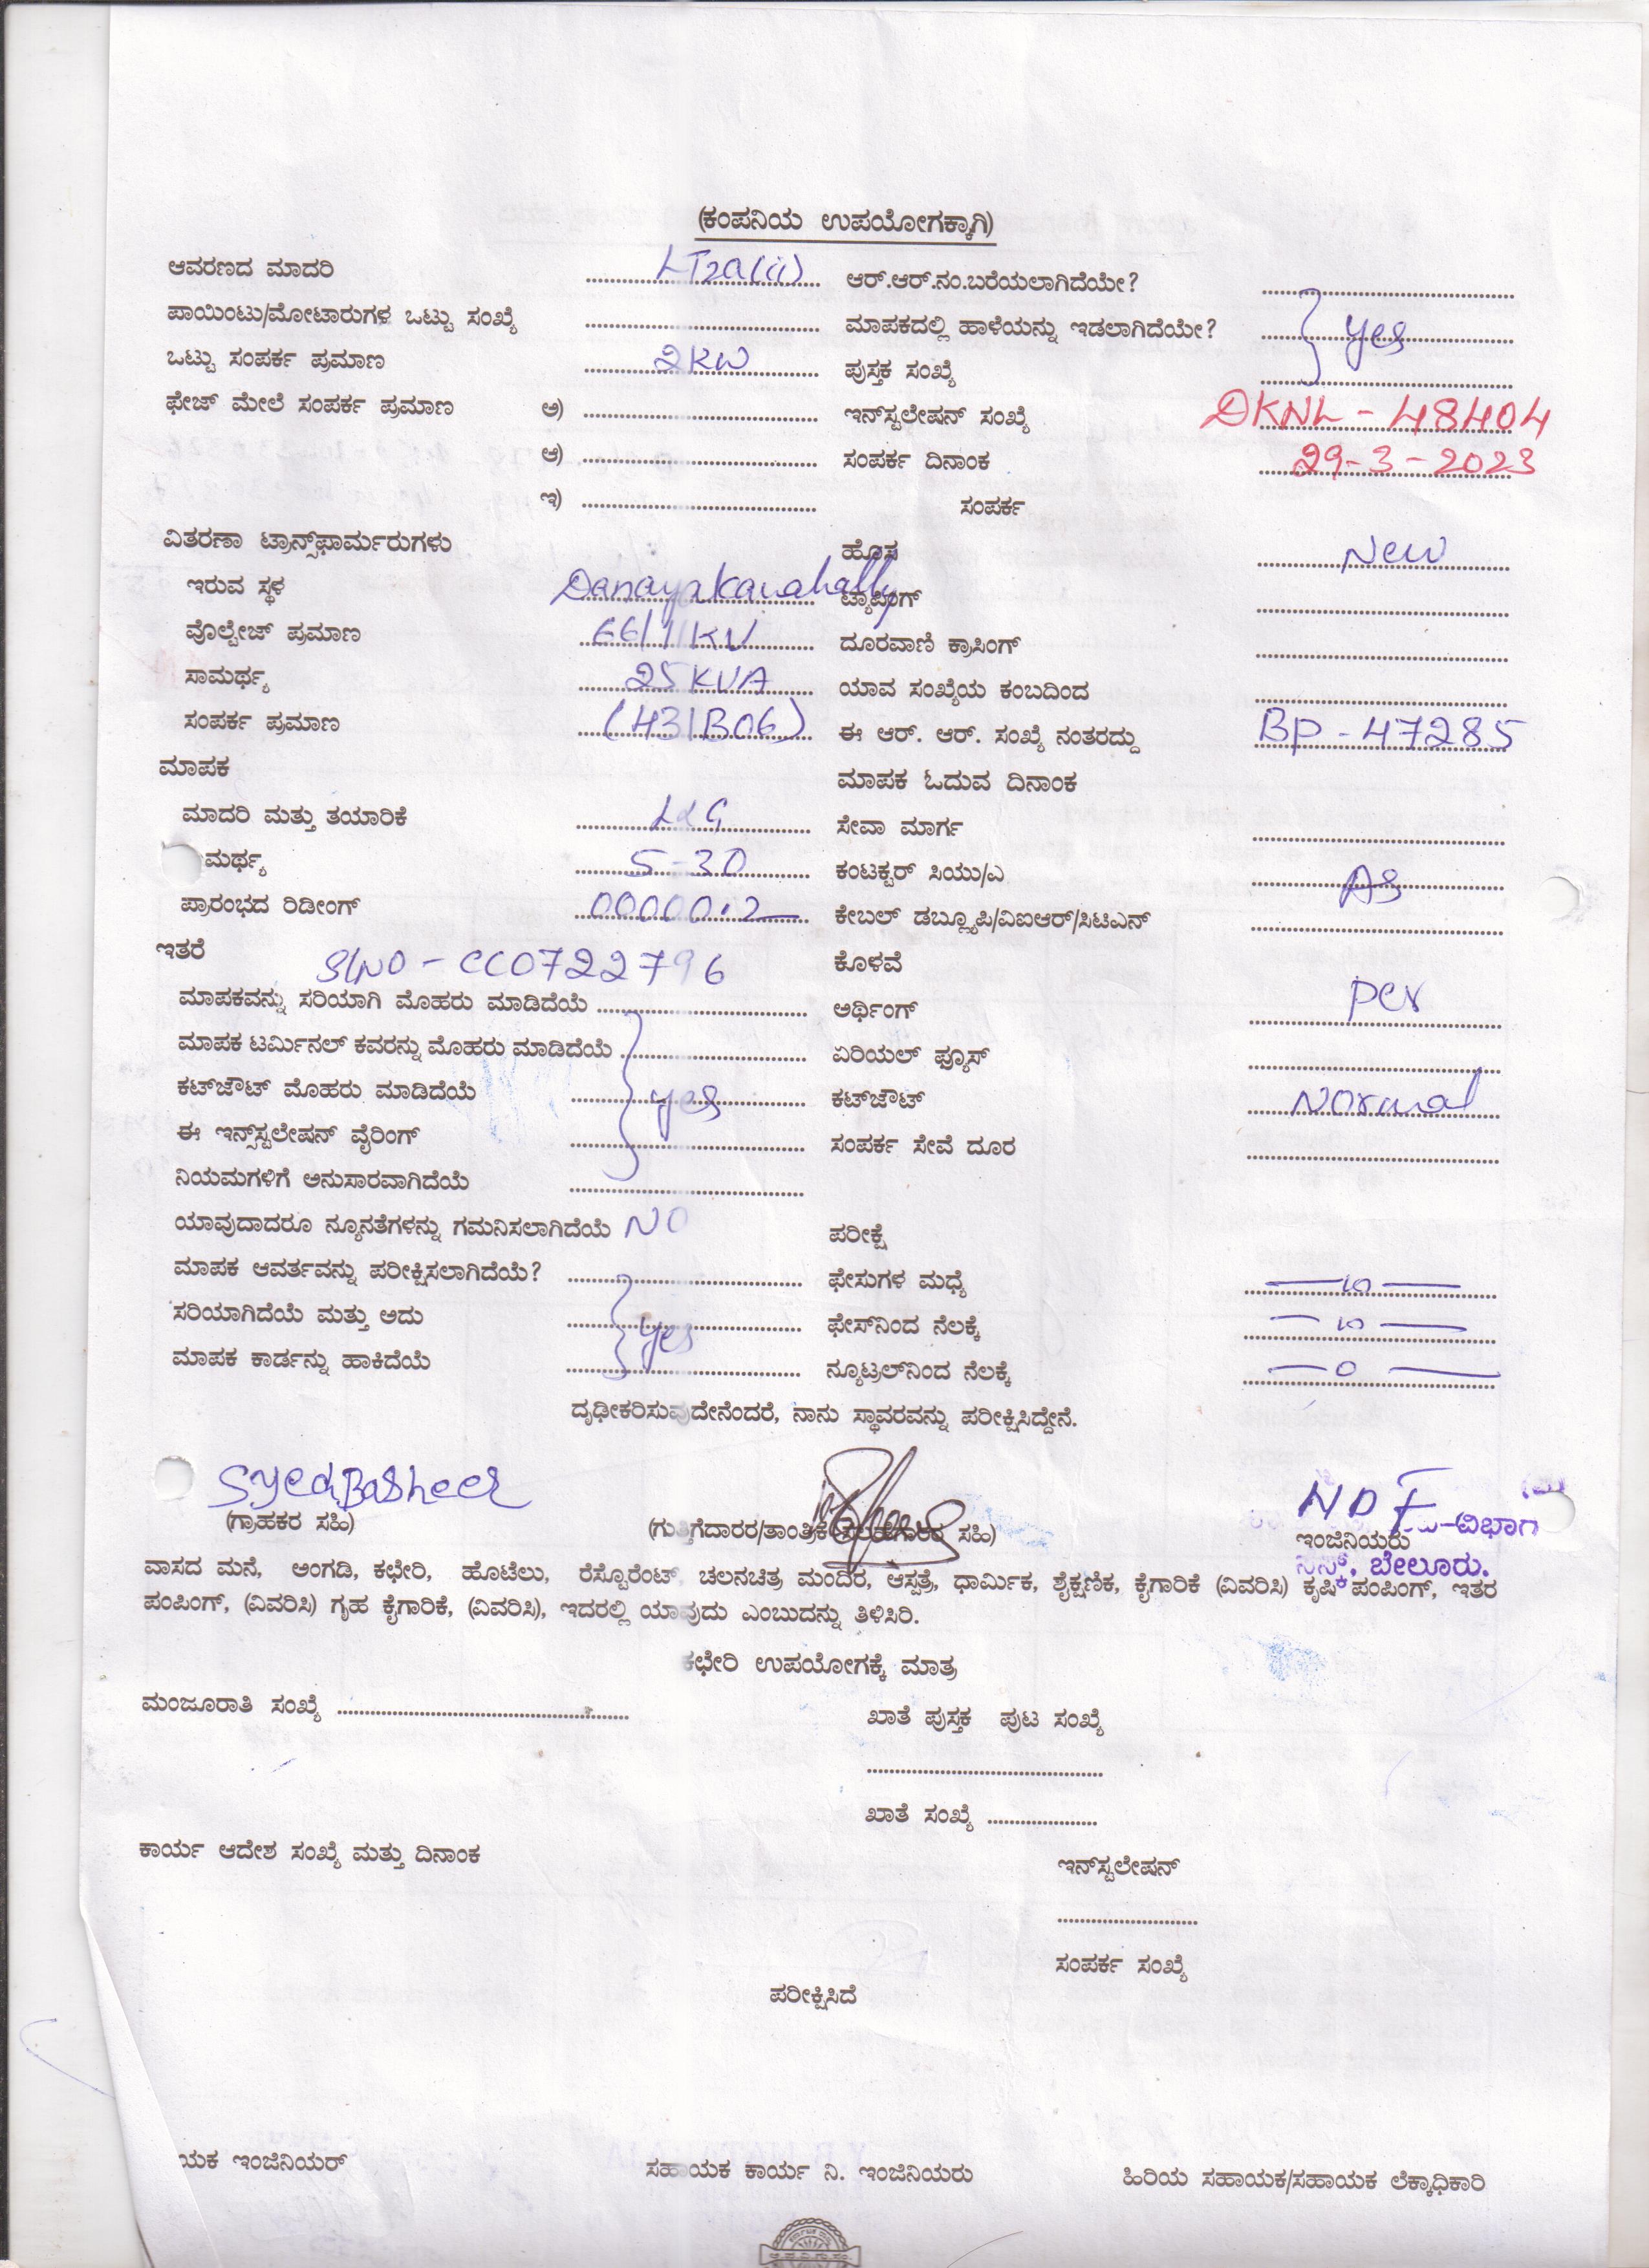 (ಕಂಪನಿಯ ಉಪಯೋಗಕ್ಕಾಗಿ)
ಆವರಣದ ಮಾದರಿ LT2a(ii) ಆರ್.ಆರ್.ನಂ.ಬರೆಯಲಾಗಿದೆಯೇ?
ಪಾಯಿಂಟು/ಮೋಟಾರುಗಳ ಒಟ್ಟು ಸಂಖ್ಯೆ ಮಾಪಕದಲ್ಲಿ ಹಾಳೆಯನ್ನು ಇಡಲಾಗಿದೆಯೇ? yes
ಒಟ್ಟು ಸಂಪರ್ಕ ಪ್ರಮಾಣ 2KW ಪುಸ್ತಕ ಸಂಖ್ಯೆ
ಫೇಜ್ ಮೇಲೆ ಸಂಪರ್ಕ ಪ್ರಮಾಣ ಅ) ಇನ್‌ಸ್ಟಲೇಷನ್ ಸಂಖ್ಯೆ DKNL - 48404
ಆ) ಸಂಪರ್ಕ ದಿನಾಂಕ 29-3-2023
ಇ) ಸಂಪರ್ಕ
ವಿತರಣಾ ಟ್ರಾನ್ಸ್‌ಫಾರ್ಮರುಗಳು ಹೊಸ New
ಇರುವ ಸ್ಥಳ Danayakanahally ಟ್ಯಾಪಿಂಗ್
ವೊಲ್ಟೇಜ್ ಪ್ರಮಾಣ 66/11KV ದೂರವಾಣಿ ಕ್ರಾಸಿಂಗ್
ಸಾಮರ್ಥ್ಯ 25KVA ಯಾವ ಸಂಖ್ಯೆಯ ಕಂಬದಿಂದ
ಸಂಪರ್ಕ ಪ್ರಮಾಣ (431B06) ಈ ಆರ್. ಆರ್. ಸಂಖ್ಯೆ ನಂತರದ್ದು BP-47285
ಮಾಪಕ ಮಾಪಕ ಓದುವ ದಿನಾಂಕ
ಮಾದರಿ ಮತ್ತು ತಯಾರಿಕೆ L&G ಸೇವಾ ಮಾರ್ಗ
ಮರ್ಥ್ಯ 5-30 ಕಂಟಕ್ಟರ್ ಸಿಯು/ಎ AS
ಪ್ರಾರಂಭದ ರಿಡೀಂಗ್ 000000.2 ಕೇಬಲ್ ಡಬ್ಲ್ಯೂಪಿ/ವಿಐಆರ್/ಸಿಟಿಎನ್
ಇತರೆ Sl NO - CC0722796 ಕೊಳವೆ
ಮಾಪಕವನ್ನು ಸರಿಯಾಗಿ ಮೊಹರು ಮಾಡಿದೆಯೆ ಅರ್ಥಿಂಗ್ per
ಮಾಪಕ ಟರ್ಮಿನಲ್ ಕವರನ್ನು ಮೊಹರು ಮಾಡಿದೆಯೆ ಏರಿಯಲ್ ಫ್ಯೂಸ್
ಕಟ್‌ಔಟ್ ಮೊಹರು ಮಾಡಿದೆಯೆ yes ಕಟ್‌ಔಟ್ Normal
ಈ ಇನ್ಸ್‌ಸ್ಟಲೇಷನ್ ವೈರಿಂಗ್ ಸಂಪರ್ಕ ಸೇವೆ ದೂರ
ನಿಯಮಗಳಿಗೆ ಅನುಸಾರವಾಗಿದೆಯೆ
ಯಾವುದಾದರೂ ನ್ಯೂನತೆಗಳನ್ನು ಗಮನಿಸಲಾಗಿದೆಯೆ NO ಪರೀಕ್ಷೆ
ಮಾಪಕ ಆವರ್ತವನ್ನು ಪರೀಕ್ಷಿಸಲಾಗಿದೆಯೆ? ಫೇಸುಗಳ ಮಧ್ಯೆ 10
ಸರಿಯಾಗಿದೆಯೆ ಮತ್ತು ಅದು yes ಫೇಸ್‌ನಿಂದ ನೆಲಕ್ಕೆ 10
ಮಾಪಕ ಕಾರ್ಡನ್ನು ಹಾಕಿದೆಯೆ ನ್ಯೂಟ್ರಲ್‌ನಿಂದ ನೆಲಕ್ಕೆ 0
ದೃಢೀಕರಿಸುವುದೇನೆಂದರೆ, ನಾನು ಸ್ಥಾವರವನ್ನು ಪರೀಕ್ಷಿಸಿದ್ದೇನೆ.
Syed Basheer
(ಗ್ರಾಹಕರ ಸಹಿ) (ಗುತ್ತಿಗೆದಾರರ/ತಾಂತ್ರಿಕ ಸಲಹೆಗಾರರ ಸಹಿ) ಇಂಜಿನಿಯರು ವಿಭಾಗ
ಬೇಲೂರು.
ವಾಸದ ಮನೆ, ಅಂಗಡಿ, ಕಛೇರಿ, ಹೊಟೆಲು, ರೆಸ್ಟೊರೆಂಟ್, ಚಲನಚಿತ್ರ ಮಂದಿರ, ಆಸ್ಪತ್ರೆ, ಧಾರ್ಮಿಕ, ಶೈಕ್ಷಣಿಕ, ಕೈಗಾರಿಕೆ (ವಿವರಿಸಿ) ಕೃಷಿ ಪಂಪಿಂಗ್, ಇತರ
ಪಂಪಿಂಗ್, (ವಿವರಿಸಿ) ಗೃಹ ಕೈಗಾರಿಕೆ, (ವಿವರಿಸಿ), ಇದರಲ್ಲಿ ಯಾವುದು ಎಂಬುದನ್ನು ತಿಳಿಸಿರಿ.
ಕಛೇರಿ ಉಪಯೋಗಕ್ಕೆ ಮಾತ್ರ
ಮಂಜೂರಾತಿ ಸಂಖ್ಯೆ ಖಾತೆ ಪುಸ್ತಕ ಪುಟ ಸಂಖ್ಯೆ
ಖಾತೆ ಸಂಖ್ಯೆ
ಕಾರ್ಯ ಆದೇಶ ಸಂಖ್ಯೆ ಮತ್ತು ದಿನಾಂಕ ಇನ್‌ಸ್ಟಲೇಷನ್
ಸಂಪರ್ಕ ಸಂಖ್ಯೆ
ಪರೀಕ್ಷಿಸಿದೆ
ಯಕ ಇಂಜಿನಿಯರ್ ಸಹಾಯಕ ಕಾರ್ಯ ನಿ. ಇಂಜಿನಿಯರು ಹಿರಿಯ ಸಹಾಯಕ/ಸಹಾಯಕ ಲೆಕ್ಕಾಧಿಕಾರಿ